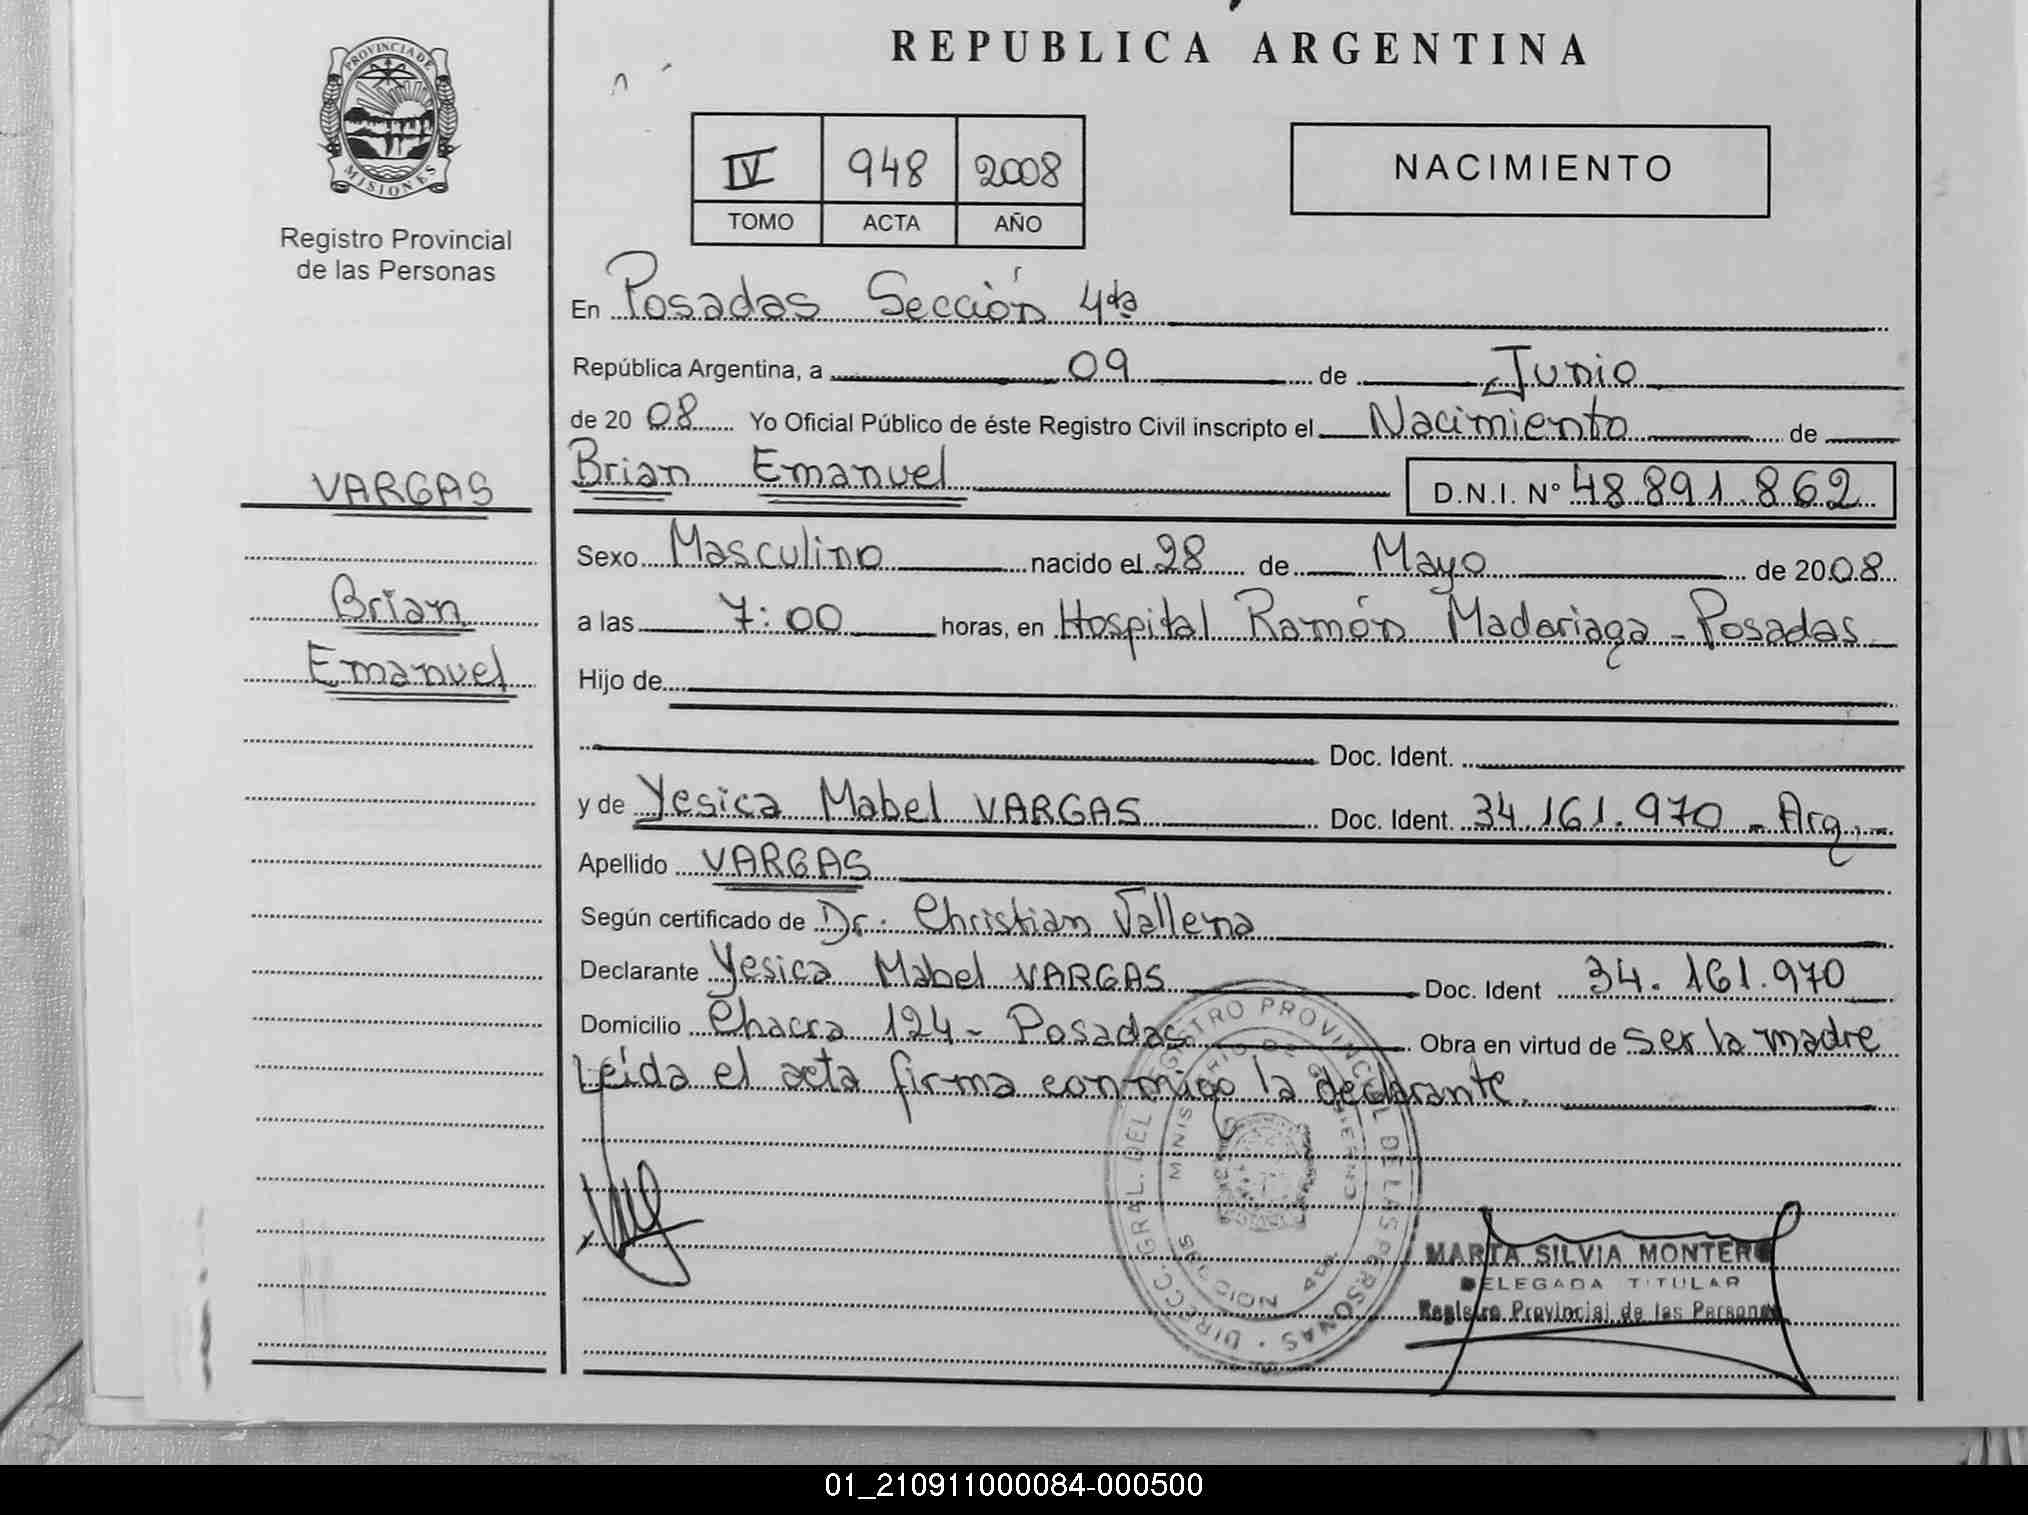 REPUBLICA ARGENTINA
PROVINCIA DE
MISIONES
Registro Provincial
de las Personas
IV 948 2008
TOMO ACTA AÑO
NACIMIENTO
En Posadas Sección 4ta
República Argentina, a 09 de Junio
de 20 08 Yo Oficial Público de éste Registro Civil inscripto el Nacimiento de
VARGAS
Brian Emanuel D.N.I. Nº 48.891.862
Sexo Masculino nacido el 28 de Mayo de 20 08
Brian
a las 7:00 horas, en Hospital Ramón Madariaga - Posadas
Emanuel
Hijo de
Doc. Ident.
y de Yesica Mabel VARGAS Doc. Ident. 34.161.970 - Arg.-
Apellido VARGAS
Según certificado de Dr. Christian Vallena
Declarante Yesica Mabel VARGAS Doc. Ident 34.161.970
Domicilio Chacra 124 - Posadas Obra en virtud de ser la madre
Leída el acta firma conmigo la declarante.
DIRECC. GRAL. DEL REGISTRO PROVINCIAL DE LAS PERSONAS
MINISTERIO DE GOBIERNO
MARTA SILVIA MONTERO
DELEGADA TITULAR
Registro Provincial de las Personas
01_210911000084-000500